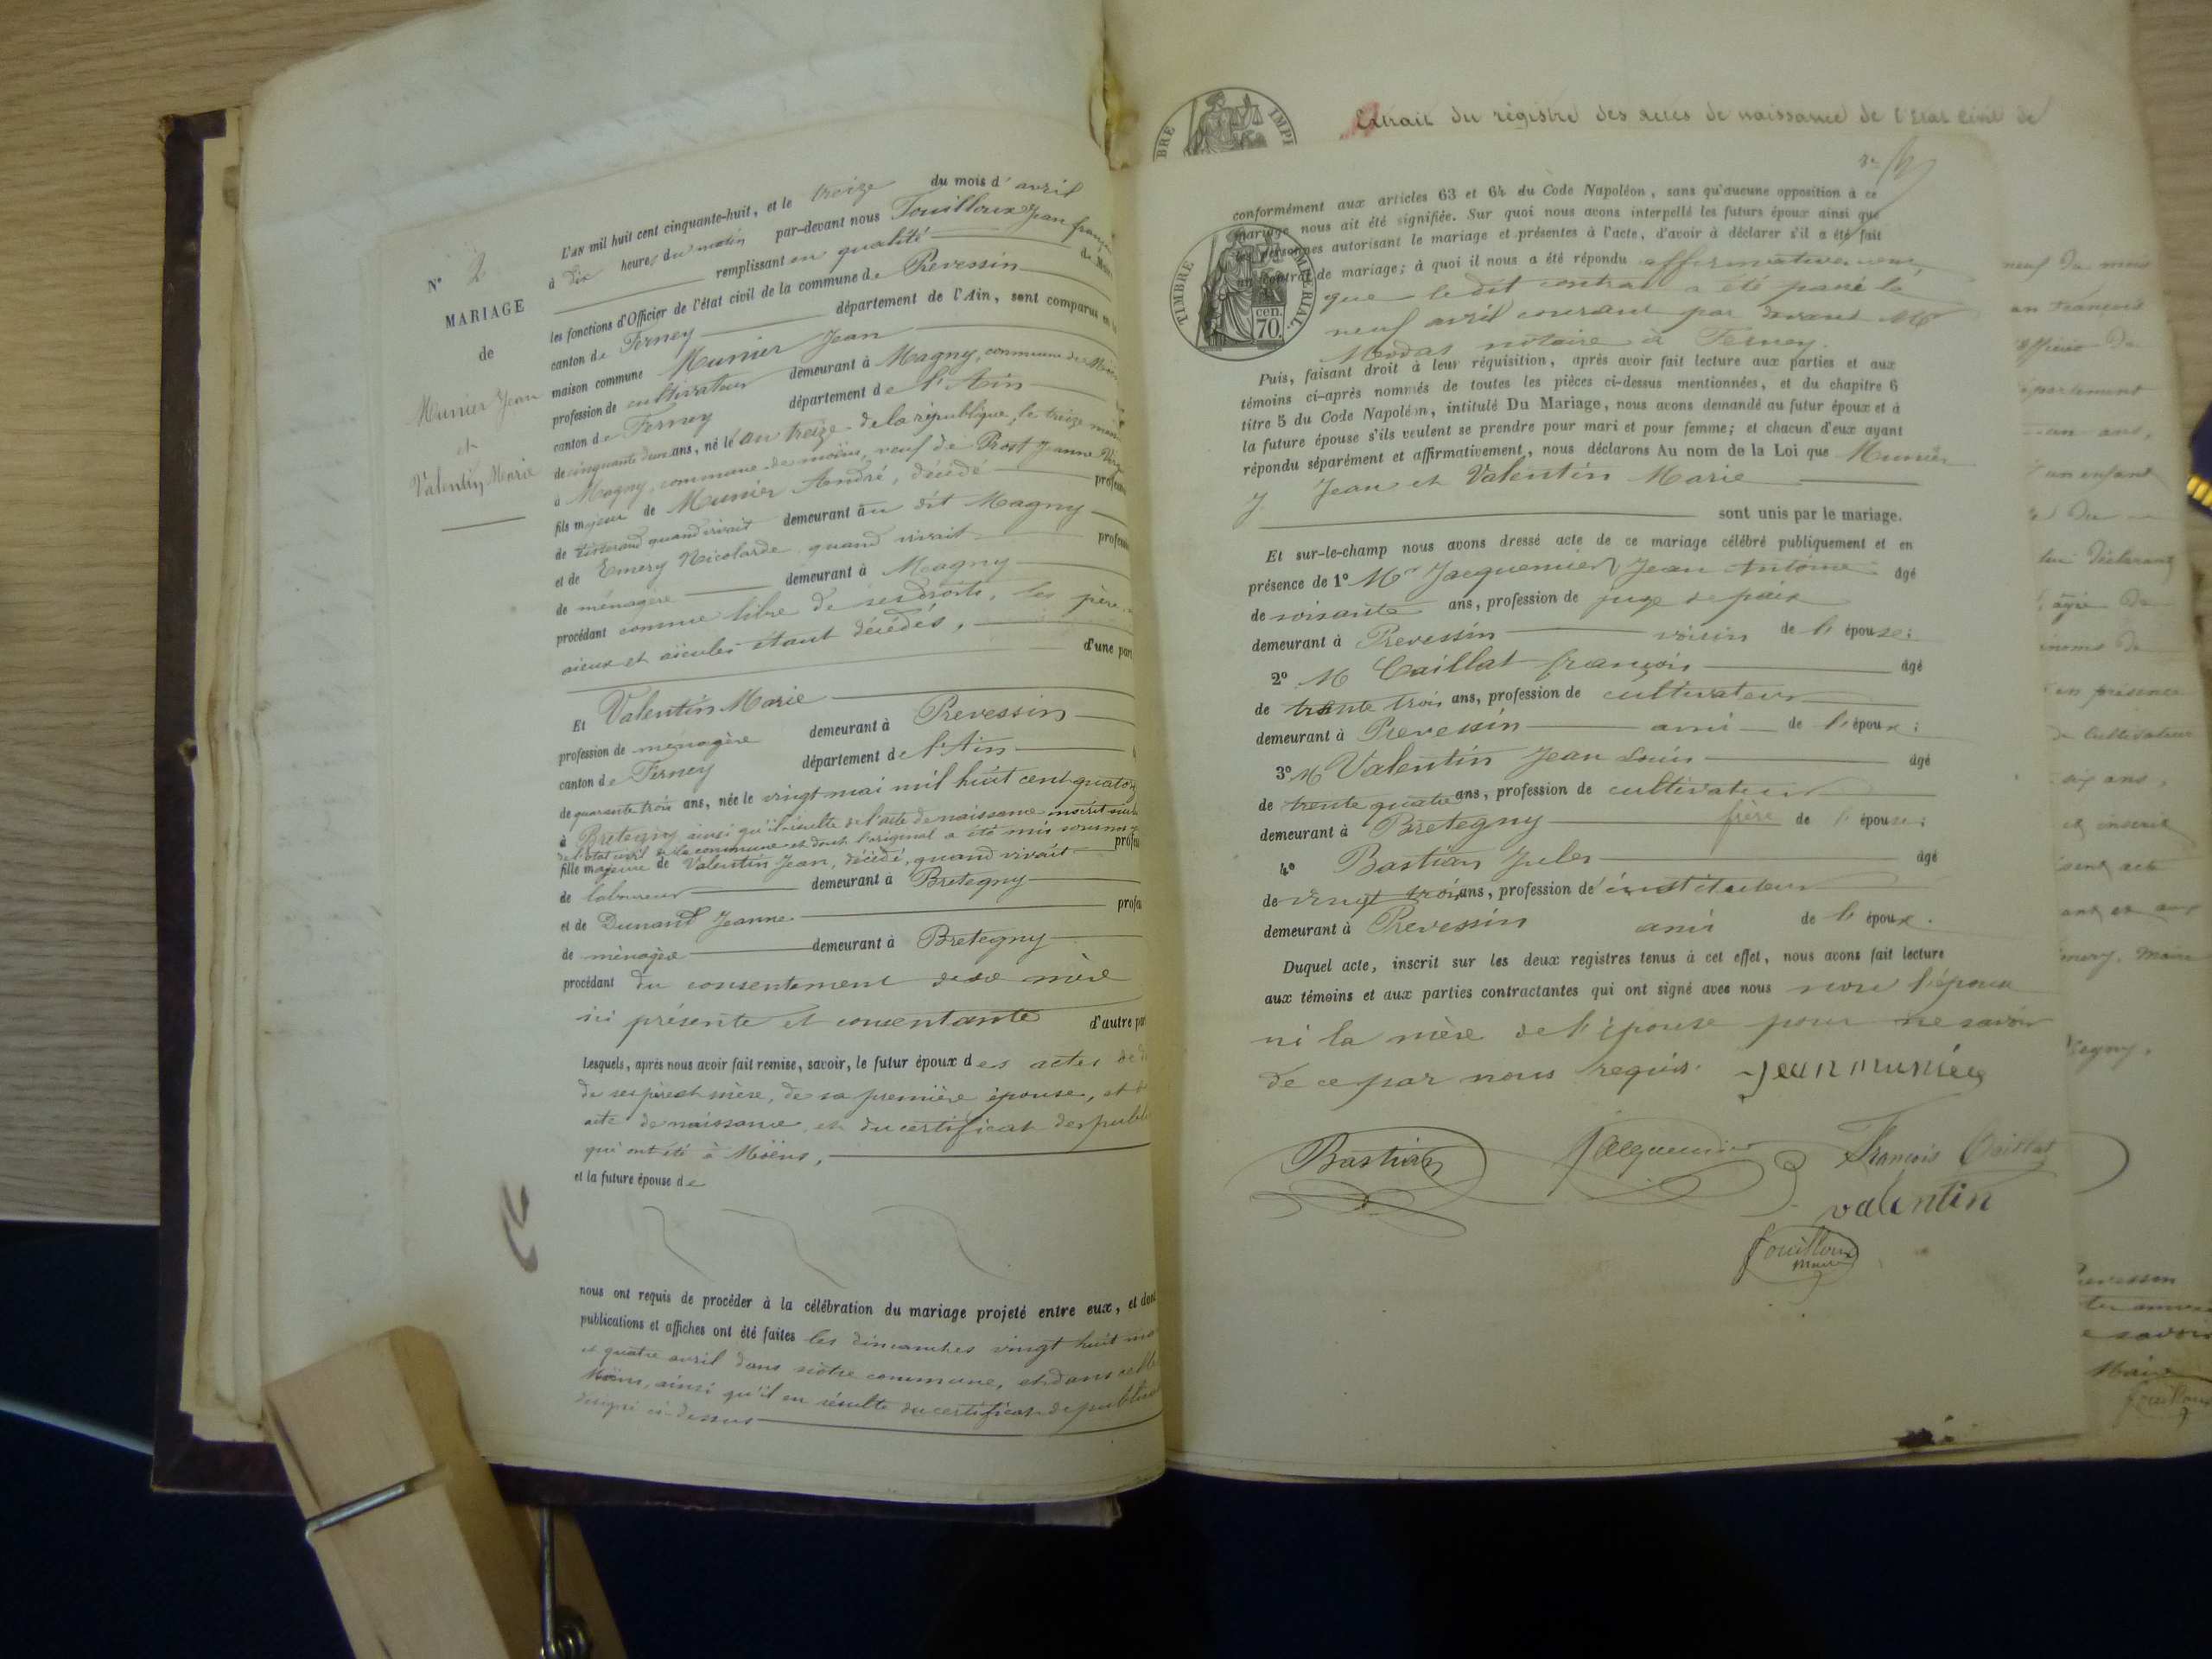 N° 2
MARIAGE
de
Munier Jean
et
Valentin Marie
L'an mil huit cent cinquante-huit, et le treize du mois d'avril
à dix heures du matin par-devant nous Fouilloux Jean françois
remplissant en qualité de Maire
les fonctions d'Officier de l'état civil de la commune de Prevessin
canton de Ferney département de l'Ain, sont comparus en la
maison commune Munier Jean
profession de cultivateur demeurant à Magny, commune de Moëns
canton de Ferney département de l'Ain
de cinquante deux ans, né le an treize de la république, le treize
à Magny, commune de moëns, veuf de Prost Jeanne
fils majeur de Munier André, décédé profession
de tisserand quand vivait demeurant au dit Magny
et de Emery Nicolarde quand vivait profession
de ménagère demeurant à Magny
procédant comme libre de ses droits, les père,
aïeux et aïeules étant décédés, d'une part
Et Valentin Marie
profession de ménagère demeurant à Prevessin
canton de Ferney département de l'Ain
de quarante trois ans, née le vingt mai mil huit cent quatorze
à Bretegny ainsi qu'il résulte de l'acte de naissance inscrit sur
de l'état civil de la commune et dont l'original a été mis sous nos
fille majeure de Valentin Jean, décédé, quand vivait profes
de laboureur demeurant à Bretegny
et de Dunand Jeanne profes
de ménagère demeurant à Bretegny
procédant du consentement de sa mère
ici présente et consentante d'autre part
Lesquels, après nous avoir fait remise, savoir, le futur époux des actes de
de ses père et mère, de sa première épouse, et
acte de naissance, et du certificat des publi
qui ont été à Moëns,
et la future épouse de
nous ont requis de procéder à la célébration du mariage projeté entre eux, et dont
publications et affiches ont été faites les dimanches vingt huit
et quatre avril dans nôtre commune, et dans celle
Moëns, ainsi qu'il en résulte du certificat de publica
désigné ci-dessus
Extrait du régistre des actes de naissance de l'Etat Civil de
conformément aux articles 63 et 64 du Code Napoléon, sans qu'aucune opposition à ce
mariage nous ait été signifiée. Sur quoi nous avons interpellé les futurs époux ainsi que
les personnes autorisant le mariage et présentes à l'acte, d'avoir à déclarer s'il a été fait
un contrat de mariage; à quoi il nous a été répondu affirmativement,
que le dit contrat a été passé le
neuf avril courant par devant Me
notaire à Ferney.
TIMBRE IMPÉRIAL.
70 cen.
Puis, faisant droit à leur réquisition, après avoir fait lecture aux parties et aux
témoins ci-après nommés de toutes les pièces ci-dessus mentionnées, et du chapitre 6
titre 5 du Code Napoléon, intitulé Du Mariage, nous avons demandé au futur époux et à
la future épouse s'ils veulent se prendre pour mari et pour femme; et chacun d'eux ayant
répondu séparément et affirmativement, nous déclarons Au nom de la Loi que Munier
Jean et Valentin Marie
sont unis par le mariage.
Et sur-le-champ nous avons dressé acte de ce mariage célébré publiquement et en
présence de 1° Mr Jacquemier Jean Antoine âgé
de soisante ans, profession de juge de paix
demeurant à Prevessin voisin de l'épouse;
2° M Caillat françois âgé
de trente trois ans, profession de cultivateur
demeurant à Prevessin ami de l'époux;
3° M Valentin Jean Louis âgé
de trente quatre ans, profession de cultivateur
demeurant à Bretegny frère de l'épouse;
4° Bastian Jules âgé
de vingt trois ans, profession de instituteur
demeurant à Prevessin ami de l'époux.
Duquel acte, inscrit sur les deux registres tenus à cet effet, nous avons fait lecture
aux témoins et aux parties contractantes qui ont signé avec nous non l'épouse
ni la mère de l'épouse pour ne savoir
de ce par nous requis. jean munier
Bastian Jacquemier François Caillat
valentin
Fouilloux
maire